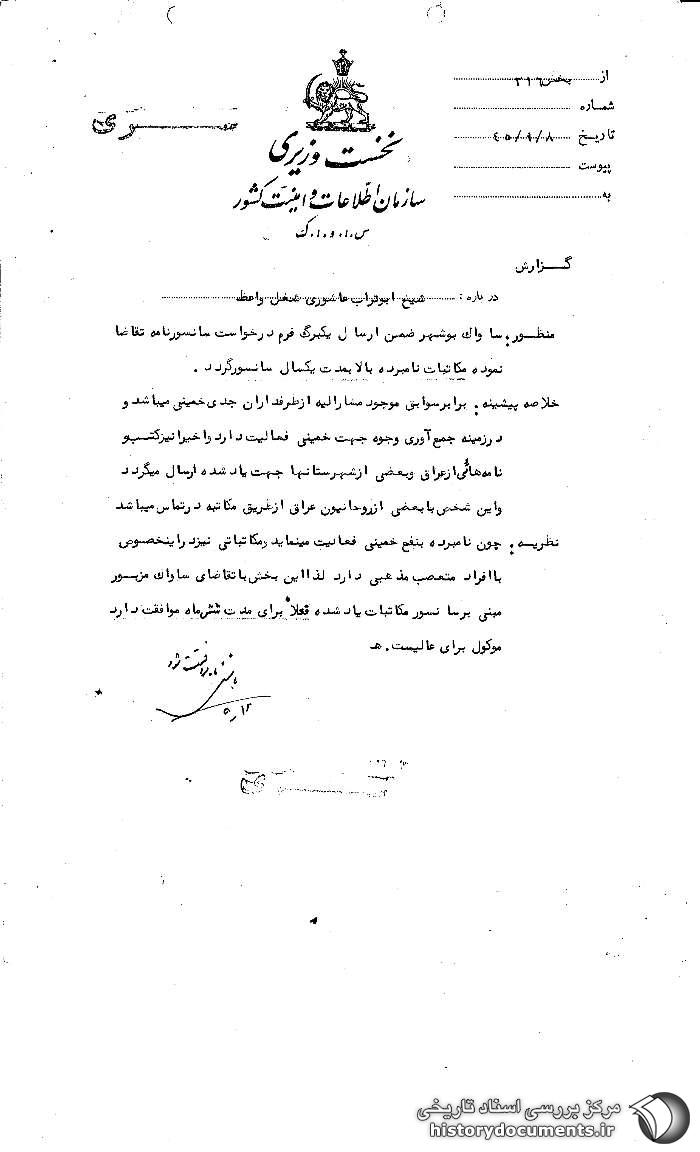 از بخش ۳۱۶
شماره
تاریخ ۴۵/۹/۸
پیوست
به
سری
نخست وزیری
سازمان اطلاعات و امنیت کشور
س.ا.و.ا.ک
گزارش
درباره : شیخ ابوتراب عاشوری شغل واعظ
منظور: ساواک بوشهر ضمن ارسال یکبرگ فرم درخواست سانسورنامه تقاضا
نموده مکاتبات نامبرده بالا بمدت یکسال سانسورگردد .
خلاصه پیشینه: برابرسوابق موجود مشارالیه ازطرفداران جدی خمینی میباشد و
درزمینه جمع آوری وجوه جهت خمینی فعالیت دارد واخیرانیزکتب و
نامه هائی ازعراق وبعضی ازشهرستانها جهت یاد شده ارسال میگردد
واین شخص با بعضی ازروحانیون عراق ازطریق مکاتبه درتماس میباشد
نظریه: چون نامبرده بنفع خمینی فعالیت مینماید ومکاتباتی نیزدراینخصوص
باافراد متعصب مذهبی دارد لذااین بخش باتقاضای ساواک مزبور
مبنی برسانسور مکاتبات یاد شده فعلاً برای مدت شش ماه موافقت دارد
موکول برای عالیست. هـ
مرکز بررسی اسناد تاریخی
historydocuments.ir